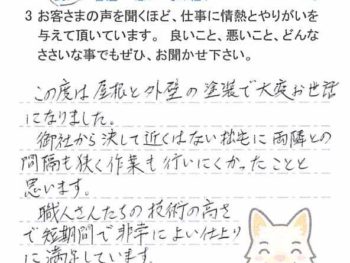 3 お客さまの声を聞くほど、仕事に情熱とやりがいを
与えて頂いています。 良いこと、悪いこと、どんな
ささいな事でもぜひ、お聞かせ下さい。
この度は屋根と外壁の塗装で大変お世話
になりました。
御社から決して近くはない拙宅に両隣との
間隔も狭く作業も行いにくかったことと
思います。
職人さんたちの技術の高さ
で短期間で非常によい仕上り
に満足しています。